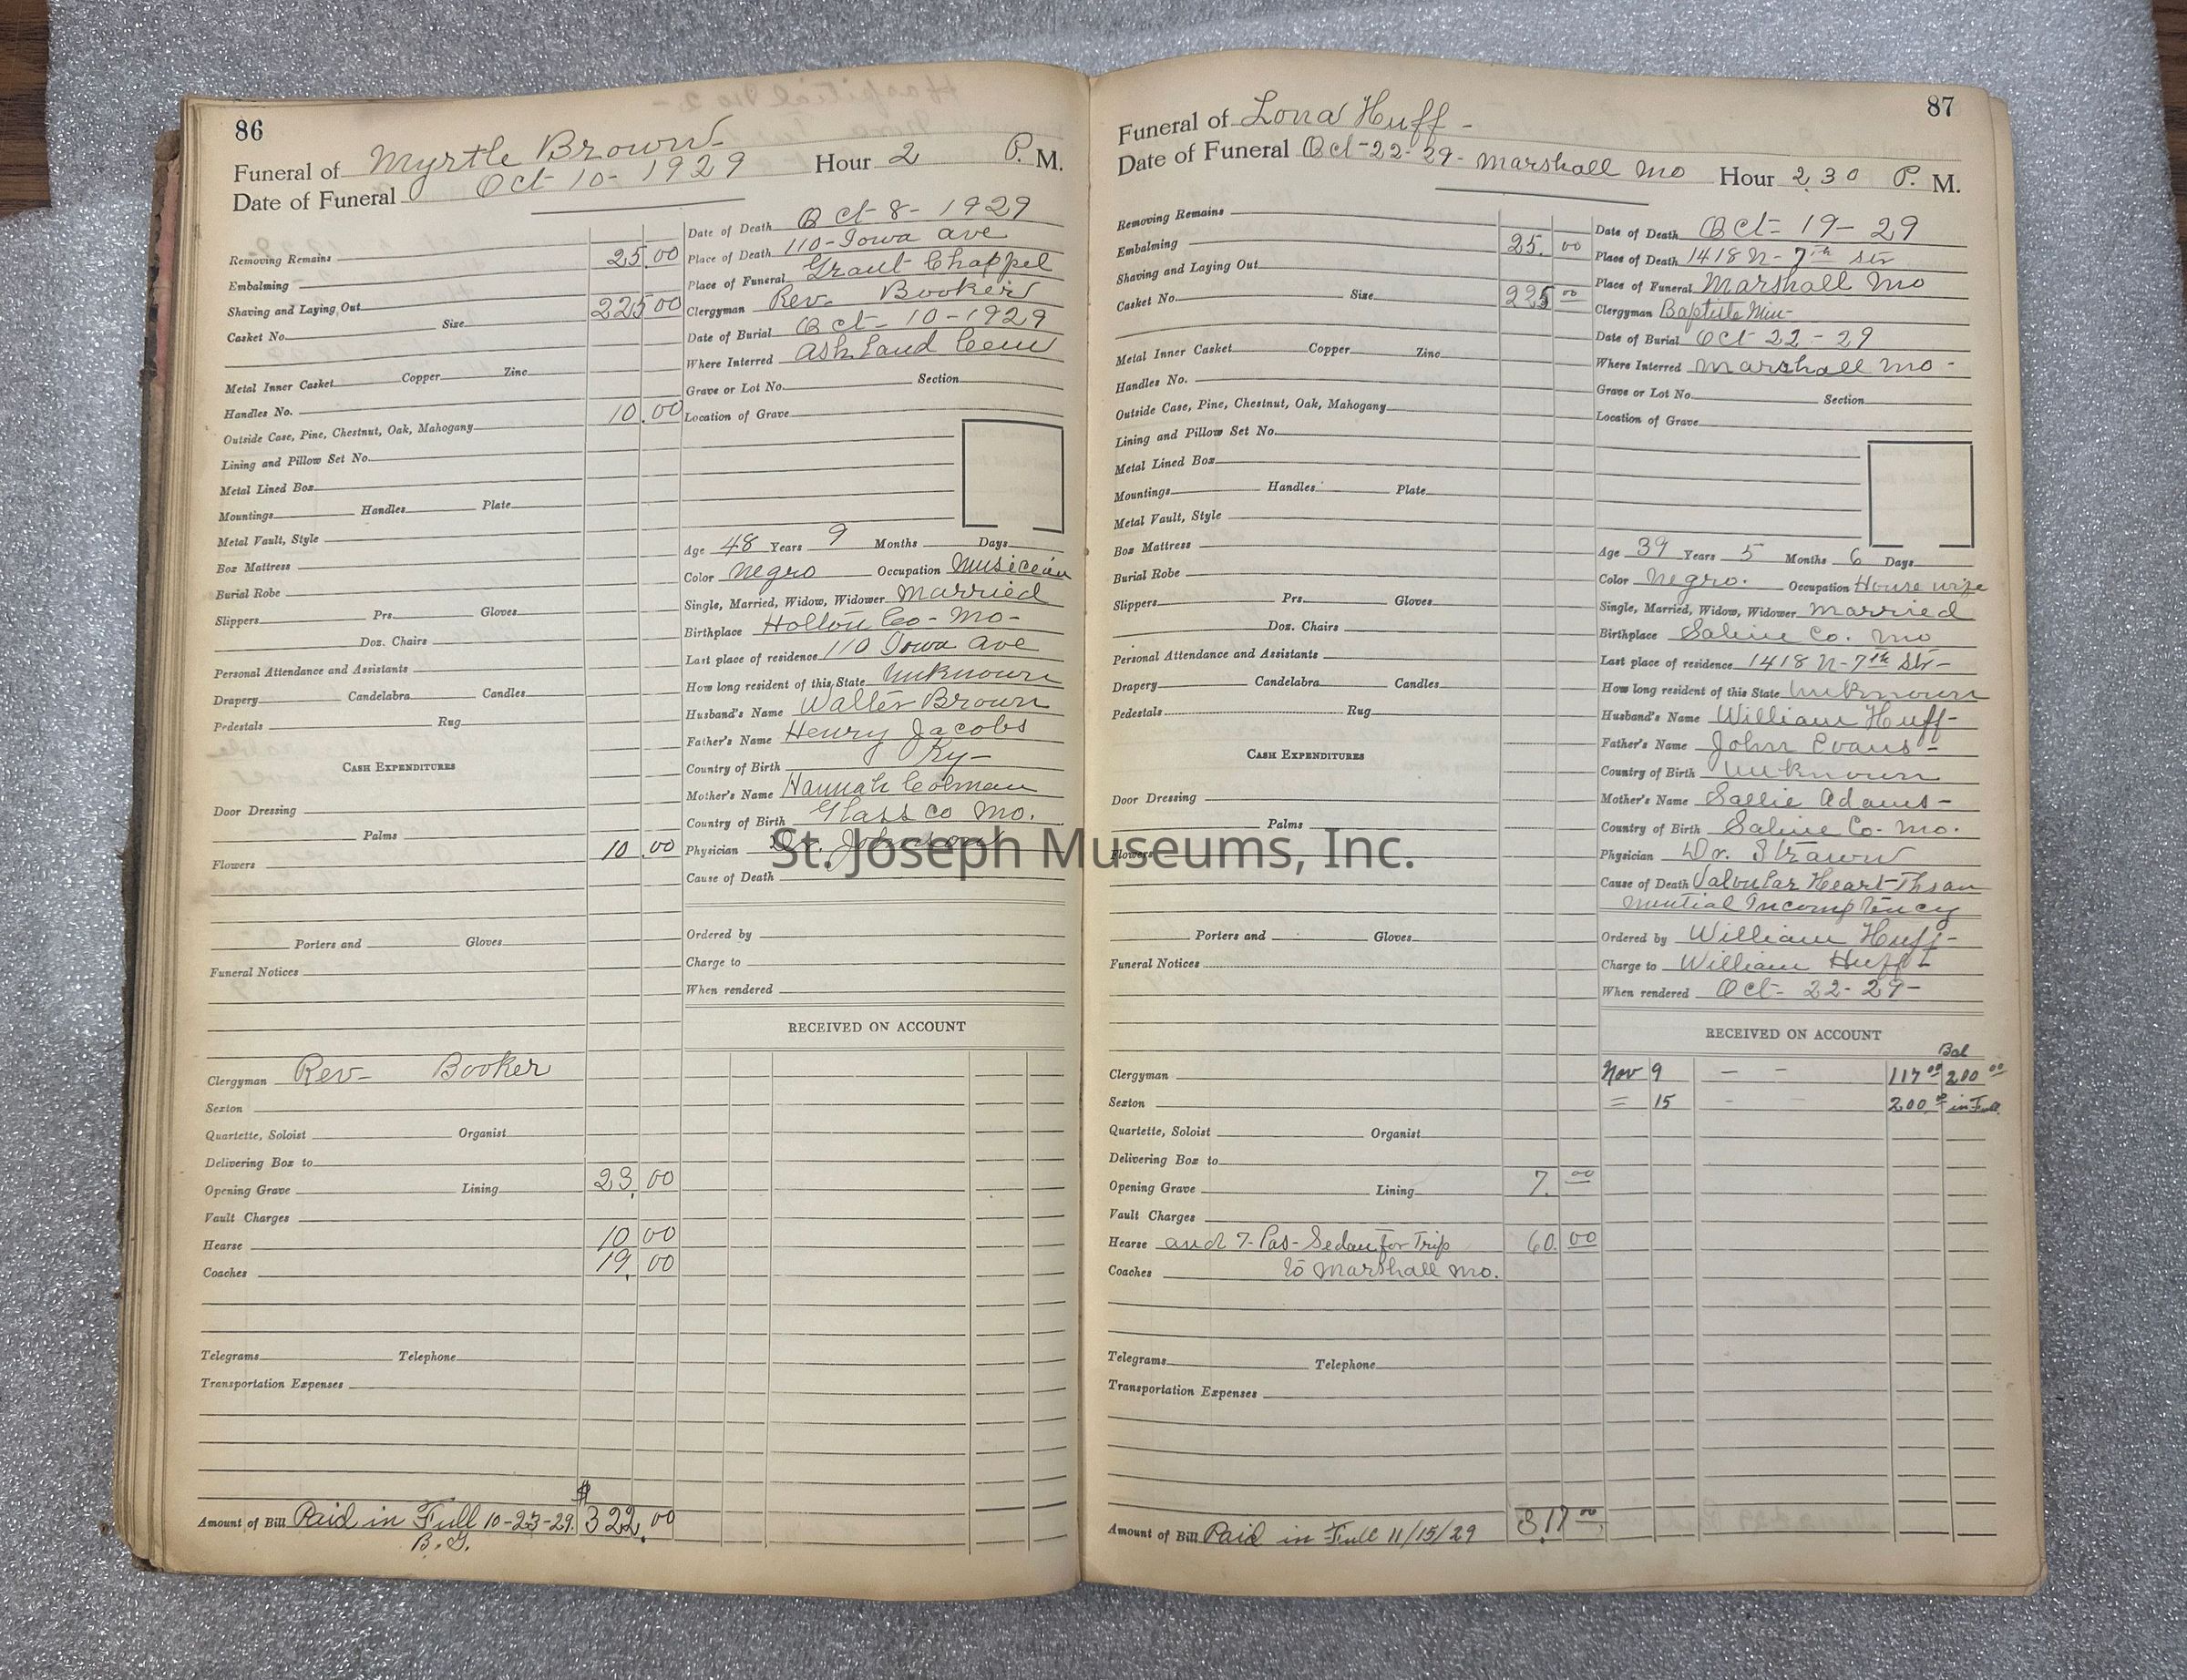 86
Funeral of Myrtle Brown-
Date of Funeral Oct-10-1929 Hour 2 P. M.
Removing Remains
Embalming 25.00
Shaving and Laying Out
Casket No. Size 225 00
Metal Inner Casket Copper Zinc
Handles No.
Outside Case, Pine, Chestnut, Oak, Mahogany 10.00
Lining and Pillow Set No.
Metal Lined Box
Mountings Handles Plate
Metal Vault, Style
Box Mattress
Burial Robe
Slippers Prs. Gloves
Doz. Chairs
Personal Attendance and Assistants
Drapery Candelabra Candles
Pedestals Rug
CASH EXPENDITURES
Door Dressing
Palms
Flowers 10.00
Porters and Gloves
Funeral Notices
Clergyman Rev- Booker
Sexton
Quartette, Soloist Organist
Delivering Box to
Opening Grave Lining 23.00
Vault Charges
Hearse 10 00
Coaches 19.00
Telegrams Telephone
Transportation Expenses
Amount of Bill Paid in Full 10-23-29. $322.00
B.G.
Date of Death Oct-8-1929
Place of Death 110-Iowa ave
Place of Funeral Grant Chappel
Clergyman Rev. Booker
Date of Burial Oct-10-1929
Where Interred Ashland Cem
Grave or Lot No. Section
Location of Grave
Age 48 Years 9 Months Days
Color Negro Occupation Musician
Single, Married, Widow, Widower Married
Birthplace Holton Co- Mo-
Last place of residence 110 Iowa ave
How long resident of this State Unknown
Husband's Name Walter Brown
Father's Name Henry Jacobs
Country of Birth Ky-
Mother's Name Hannah Colman
Country of Birth Glass Co Mo.
Physician Dr. Johnson
Cause of Death
Ordered by
Charge to
When rendered
RECEIVED ON ACCOUNT
87
Funeral of Lona Huff-
Date of Funeral Oct-22-29- Marshall Mo Hour 2.30 P. M.
Removing Remains
Embalming 25.00
Shaving and Laying Out
Casket No. Size 225 00
Metal Inner Casket Copper Zinc
Handles No.
Outside Case, Pine, Chestnut, Oak, Mahogany
Lining and Pillow Set No.
Metal Lined Box
Mountings Handles Plate
Metal Vault, Style
Box Mattress
Burial Robe
Slippers Prs. Gloves
Doz. Chairs
Personal Attendance and Assistants
Drapery Candelabra Candles
Pedestals Rug
CASH EXPENDITURES
Door Dressing
Palms
Flowers
Porters and Gloves
Funeral Notices
Clergyman
Sexton
Quartette, Soloist Organist
Delivering Box to
Opening Grave Lining 7.00
Vault Charges
Hearse and 7-Pas-Sedan for Trip 60.00
Coaches to Marshall Mo.
Telegrams Telephone
Transportation Expenses
Amount of Bill Paid in Full 11/15/29 317 00
Date of Death Oct-19-29
Place of Death 1418 N-7th Str
Place of Funeral Marshall Mo
Clergyman Baptiste Min-
Date of Burial Oct-22-29
Where Interred Marshall Mo-
Grave or Lot No. Section
Location of Grave
Age 39 Years 5 Months 6 Days
Color Negro. Occupation House wife
Single, Married, Widow, Widower Married
Birthplace Saline Co. Mo
Last place of residence 1418 N-7th Str-
How long resident of this State Unknown
Husband's Name William Huff-
Father's Name John Evans-
Country of Birth Unknown
Mother's Name Sallie Adams-
Country of Birth Saline Co- Mo.
Physician Dr. Strawn
Cause of Death Valvular Heart
Ordered by William Huff-
Charge to William Huff-
When rendered Oct-22-29-
RECEIVED ON ACCOUNT
Bal
Nov 9 - - 117 00 200 00
= 15 - - 200.00 in Full
St. Joseph Museums, Inc.